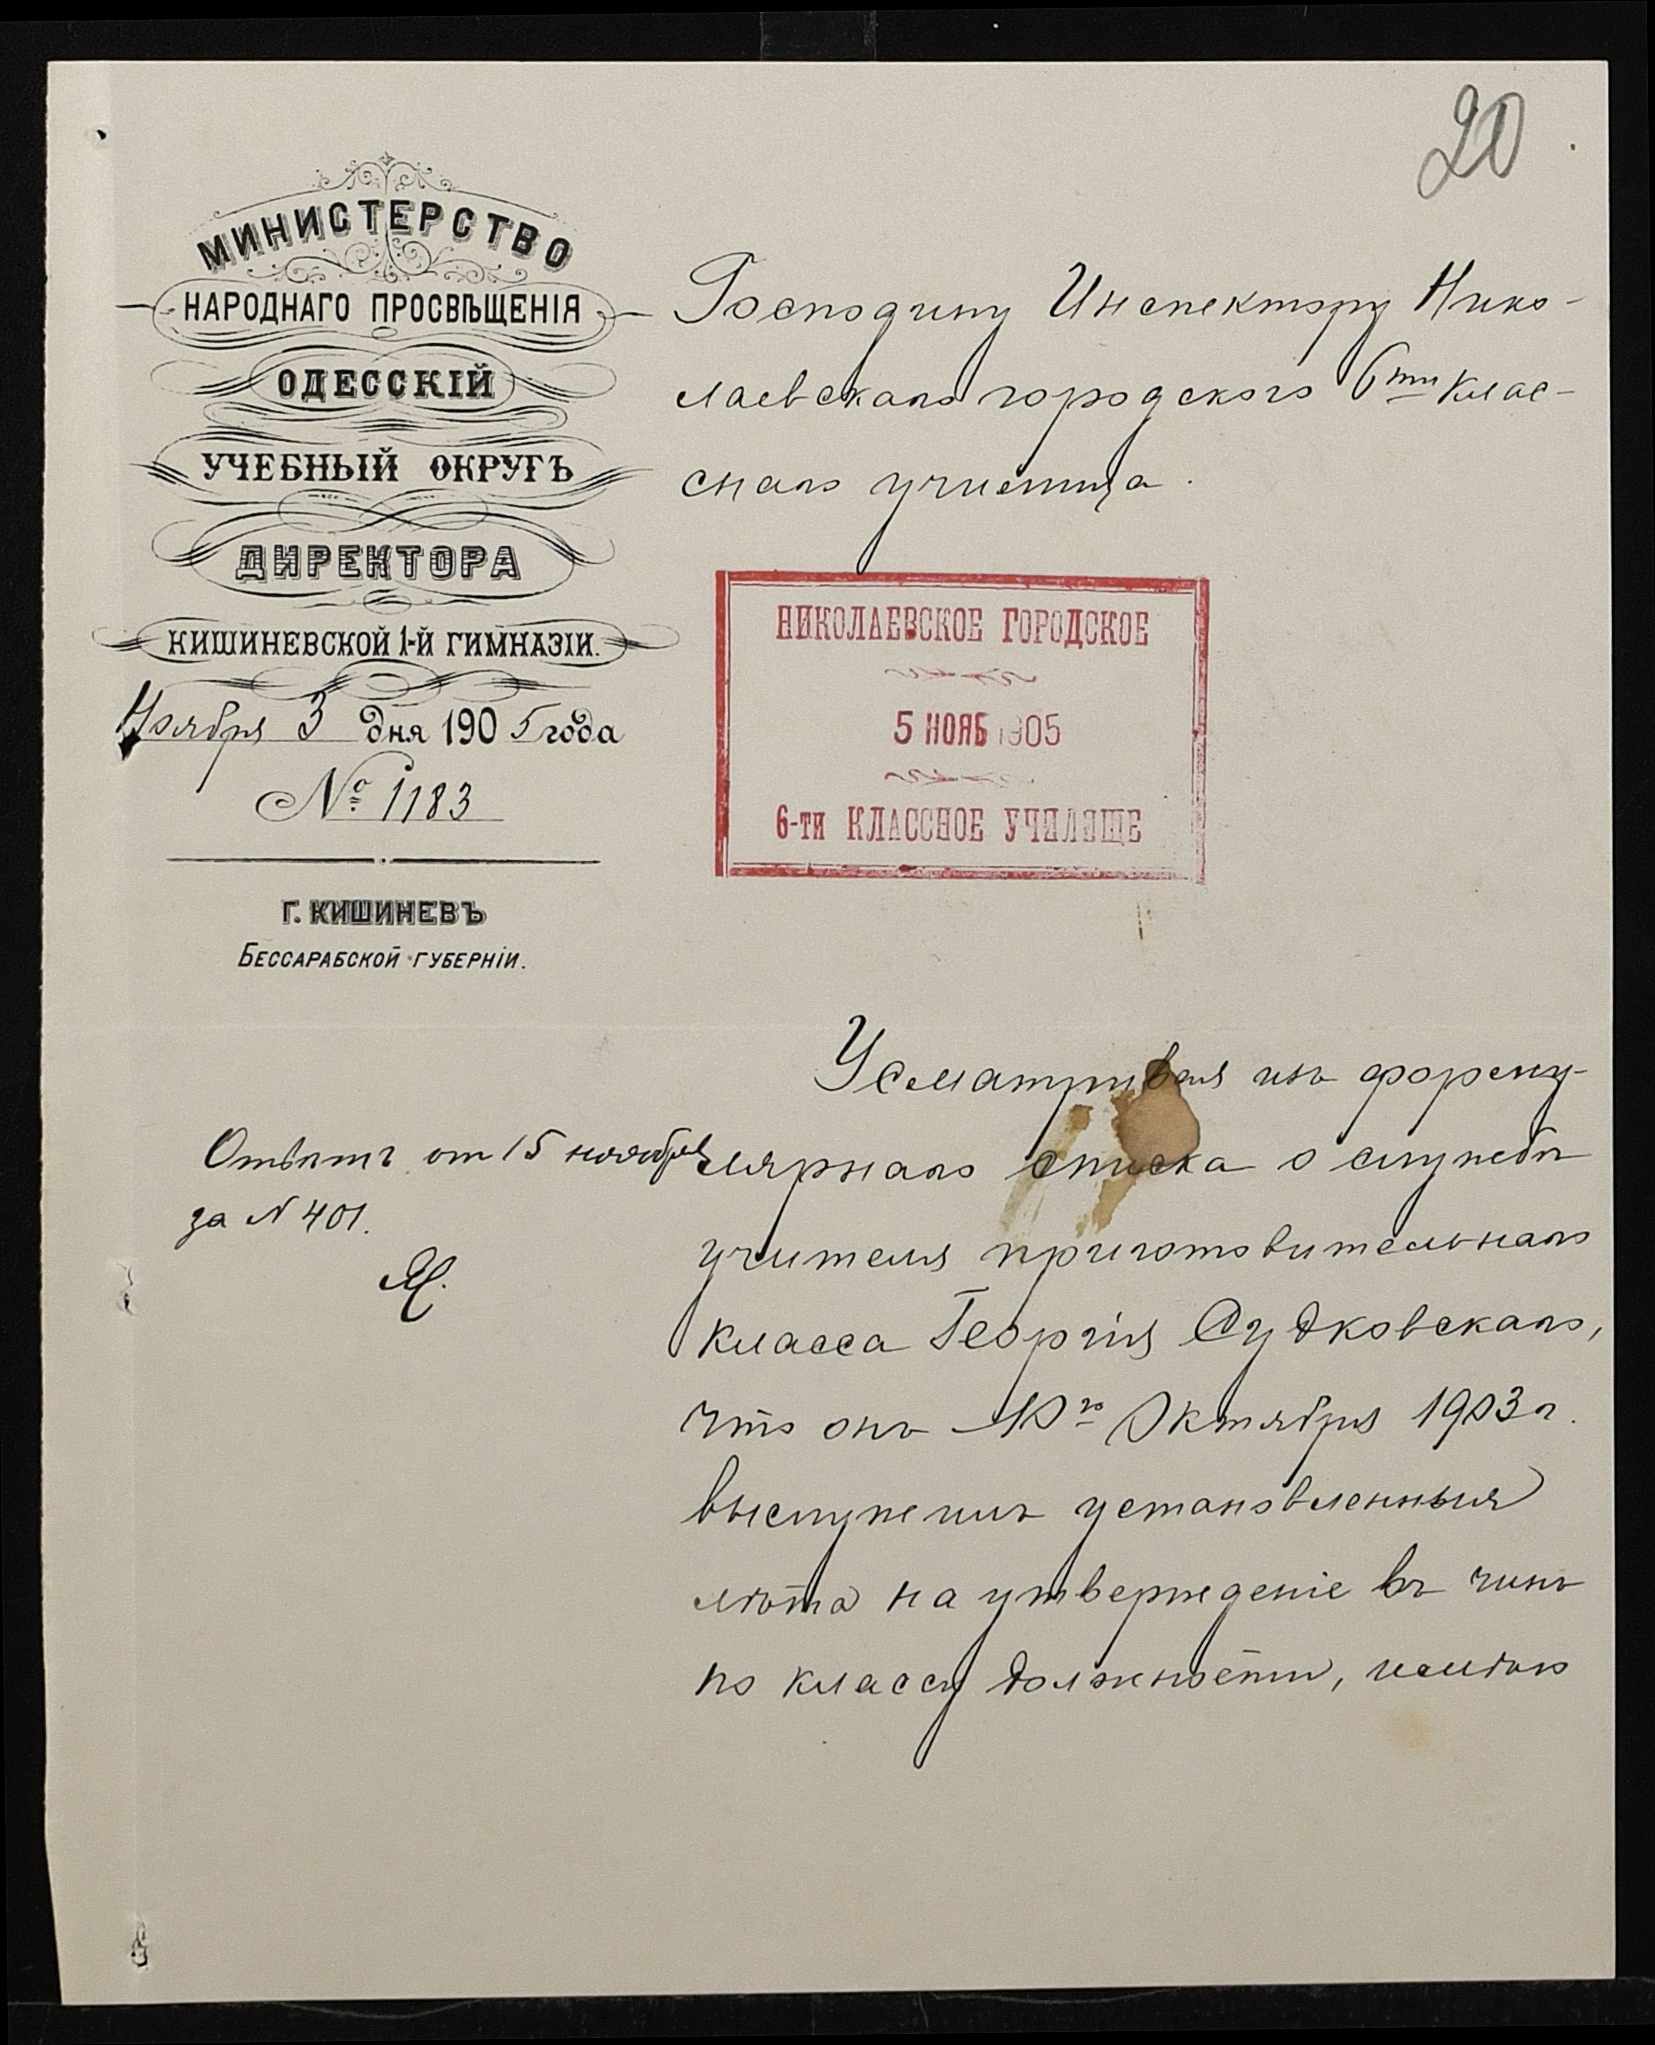 20
МИНИСТЕРСТВО
НАРОДНАГО ПРОСВѢЩЕНІЯ
ОДЕССКІЙ
УЧЕБНЫЙ ОКРУГЪ
ДИРЕКТОРА
КИШИНЕВСКОЙ 1-Й ГИМНАЗІИ.
Ноября 3 дня 1905 года
№ 1183
Г. КИШИНЕВЪ
БЕССАРАБСКОЙ ГУБЕРНІИ.
Господину Инспектору Нико-
лаевскаго городского 6ти клас-
снаго училища.
НИКОЛАЕВСКОЕ ГОРОДСКОЕ
5 НОЯБ 1905
6-ти КЛАССНОЕ УЧИЛИЩЕ
Отвѣтъ от 15 ноября
за N 401.
Усматривая изъ форму-
лярнаго списка о службѣ
учителя приготовительнаго
класса Георгія Судковскаго,
что онъ 10го Октября 1903 г.
выслужилъ установленныя
лѣта на утвержденіе въ чинъ
по классу должности, имѣю